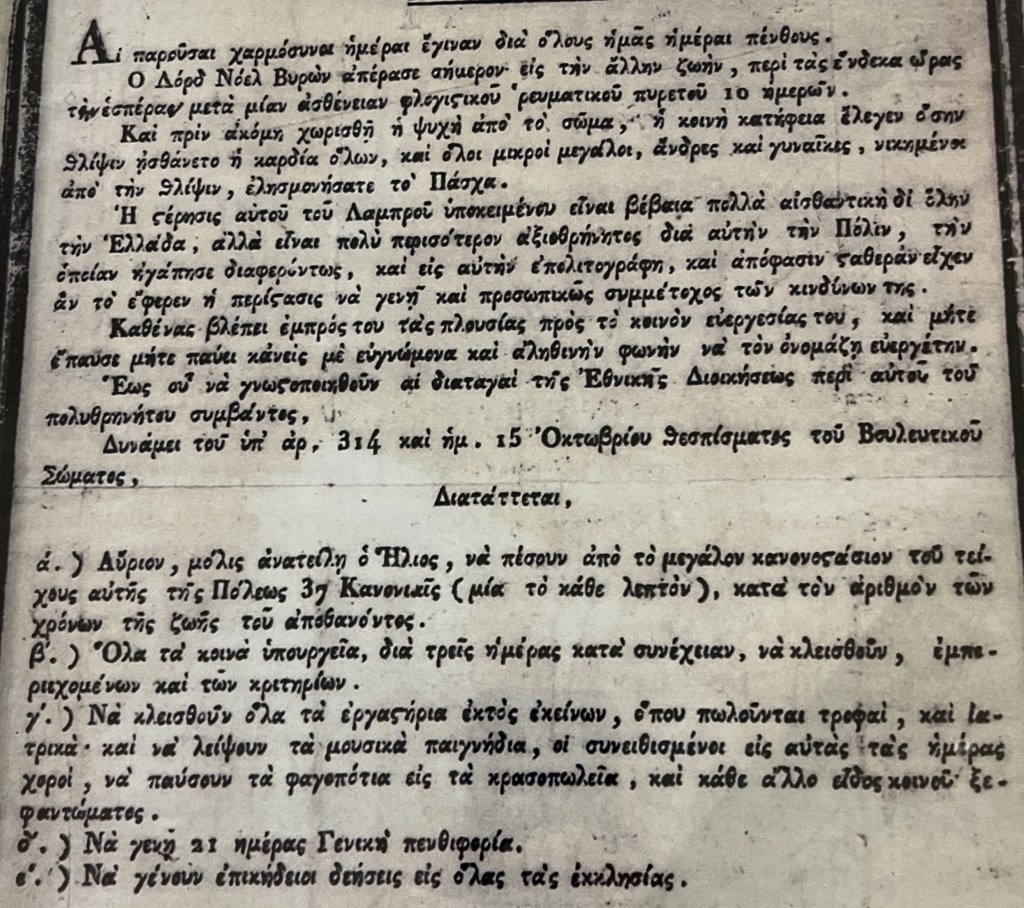 Αἱ παροῦσαι χαρμόσυνοι ἡμέραι ἔγιναν διὰ ὅλους ἡμᾶς ἡμέραι πένθους.
Ο Λόρδ Νόελ Βυρὼν ἀπέρασε σήμερον εἰς τὴν ἄλλην ζωὴν, περὶ τὰς ἕνδεκα ὥρας
τὴν ἑσπέραν μετὰ μίαν ἀσθένειαν φλογιςικοῦ ῥευματικοῦ πυρετοῦ 10 ἡμερῶν.
Καὶ πρὶν ἀκόμη χωρισθῇ ἡ ψυχὴ ἀπὸ τὸ σῶμα, ἡ κοινὴ κατήφεια ἔλεγεν ὅσην
θλίψιν ᾐσθάνετο ἡ καρδία ὅλων, καὶ ὅλοι μικροὶ μεγάλοι, ἄνδρες καὶ γυναῖκες, νικημένοι
ἀπὸ τὴν θλίψιν, ἐλησμονήσατε τὸ Πάσχα.
Ἡ ςέρησις αὐτοῦ τοῦ Λαμπροῦ ὑποκειμένου εἶναι βέβαια πολλὰ αἰσθαντικὴ δι' ὅλην
τὴν Ἑλλάδα, ἀλλὰ εἶναι πολὺ περισότερον ἀξιοθρήνητος διὰ αὐτὴν τὴν Πόλιν, τὴν
ὁποίαν ἠγάπησε διαφερόντως, καὶ εἰς αὐτὴν ἐπολιτογράφη, καὶ ἀπόφασιν ςαθερὰν εἶχεν
ἂν τὸ ἔφερεν ἡ περίςασις νὰ γενῇ καὶ προσωπικῶς συμμέτοχος τῶν κινδύνων της.
Καθένας βλέπει ἐμπρός του τὰς πλουσίας πρὸς τὸ κοινὸν εὐεργεσίας του, καὶ μήτε
ἔπαυσε μήτε παύει κἀνεὶς μὲ εὐγνώμονα καὶ ἀληθινὴν φωνὴν νὰ τὸν ὀνομάζῃ εὐεργέτην.
Ἕως οὗ νὰ γνωςοποιηθοῦν αἱ διαταγαὶ τῆς Ἐθνικῆς Διοικήσεως περὶ αὐτοῦ τοῦ
πολυθρηνήτου συμβάντος,
Δυνάμει τοῦ ὑπ' ἀρ. 314 καὶ ἡμ. 15 Ὀκτωβρίου θεσπίσματος τοῦ Βουλευτικοῦ
Σώματος,
Διατάττεται,
ά.) Αὔριον, μόλις ἀνατείλῃ ὁ Ἥλιος, νὰ πέσουν ἀπὸ τὸ μεγάλον κανονοςάσιον τοῦ τεί-
χους αὐτῆς τῆς Πόλεως 37 Κανονιαῖς (μία τὸ κάθε λεπτὸν), κατὰ τὸν ἀριθμὸν τῶν
χρόνων τῆς ζωῆς τοῦ ἀποθανόντος.
β'.) Ὅλα τὰ κοινὰ ὑπουργεῖα, διὰ τρεῖς ἡμέρας κατὰ συνέχειαν, νὰ κλεισθοῦν, ἐμπε-
ριεχομένων καὶ τῶν κριτηρίων.
γ'.) Νὰ κλεισθοῦν ὅλα τὰ ἐργαςήρια ἐκτὸς ἐκείνων, ὅπου πωλοῦνται τροφαὶ, καὶ ἰα-
τρικά· καὶ νὰ λείψουν τὰ μουσικὰ παιγνήδια, οἱ συνειθισμένοι εἰς αὐτὰς τὰς ἡμέρας
χοροὶ, νὰ παύσουν τὰ φαγοπότια εἰς τὰ κρασοπωλεῖα, καὶ κάθε ἄλλο εἶδος κοινοῦ ξε-
φαντώματος.
δ'.) Νὰ γενῇ 21 ημέρας Γενικὴ πενθιφορία.
ε'.) Νὰ γένουν ἐπικήδειοι δεήσεις εἰς ὅλας τὰς ἐκκλησίας.